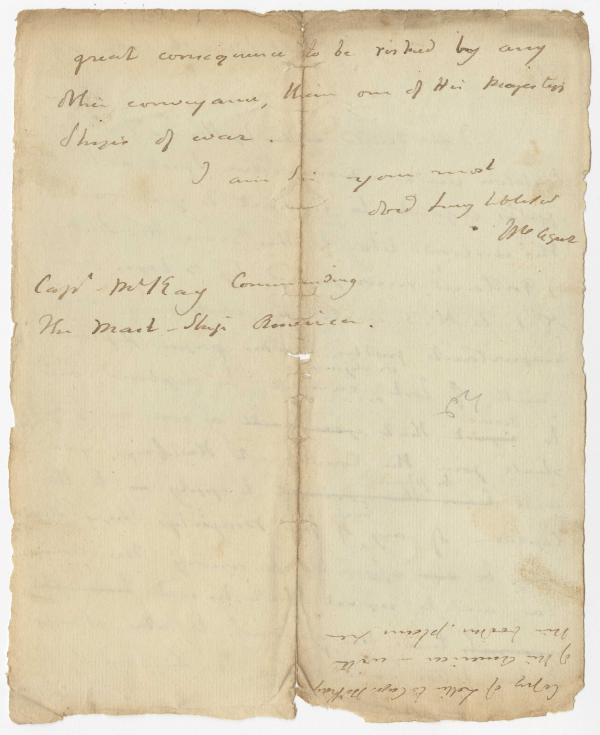 great consequence to be risked by any
other conveyance, than one of His Majestys
Ships of war.
I am Sir your most
obed huy
Capt. McKay Commanding
The Mast-Ship America.
Copy of Letter to Capt. McKay
of the America - with